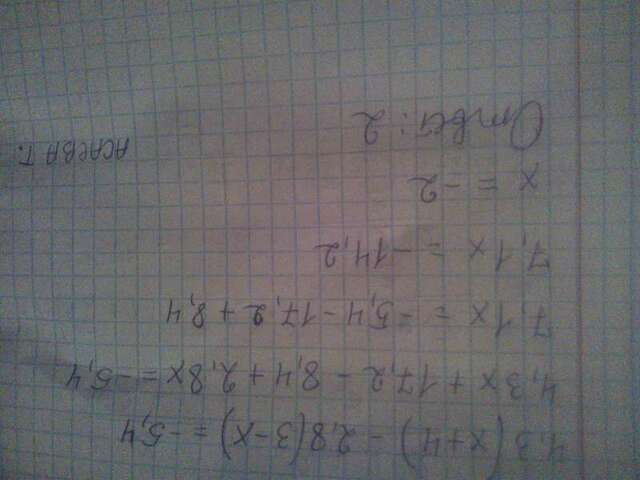 4,3(x+4) - 2,8(3-x) = -5,4
4,3x + 17,2 - 8,4 + 2,8x = -5,4
7,1x = -5,4 - 17,2 + 8,4
7,1x = -14,2
x = -2
Ответ: 2
АСАЕВА Т.